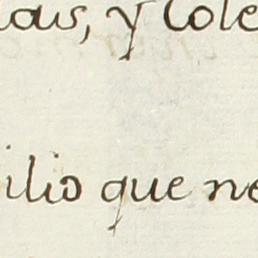 y Cole
ilio que ne